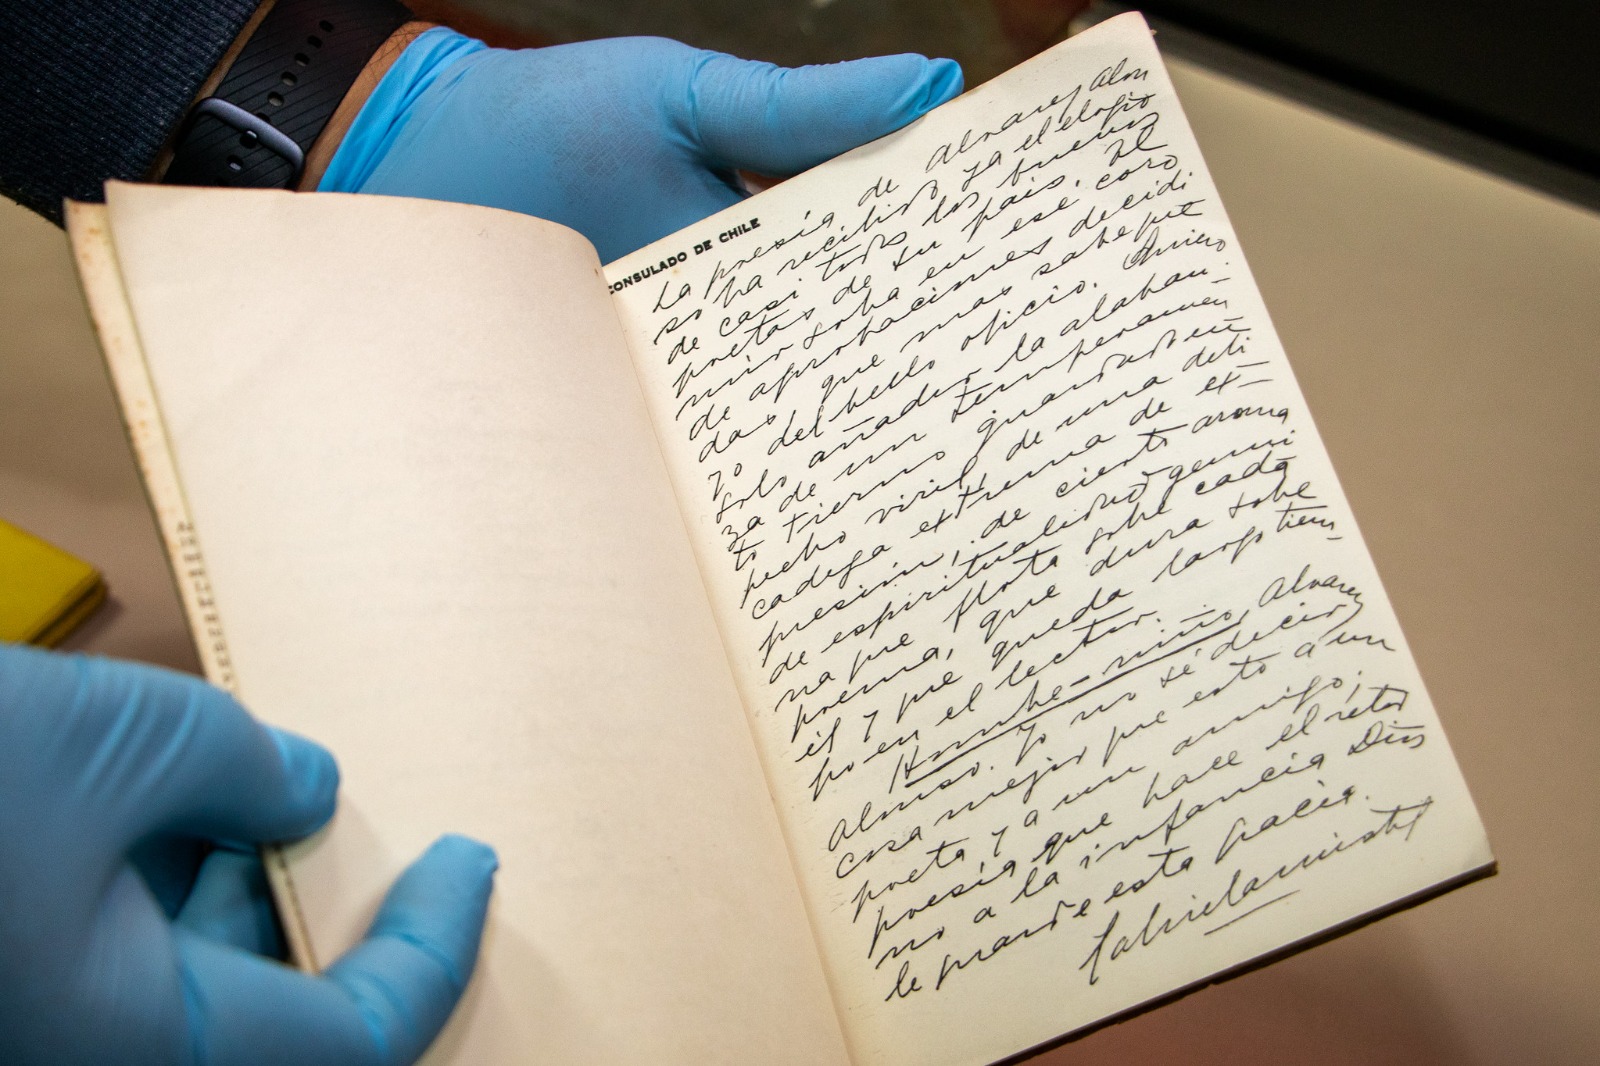 CONSULADO DE CHILE
La poesía de Alvarez Alon
so ha recibido ya el elogio
de casi todos los buenos
poetas de su país. Al
mio sobra en ese coro
de aprobaciones decidi
das que mas sabe que
yo del bello oficio. Quiero
solo añadir la alaban-
za de un temperamen-
to tierno guardado en
pecho viril, de una deli
cadeza extrema de ex-
presión, de cierto aroma
de espiritualidad genui
na que flota sobre cada
poema, que dura sobre
él y que queda largo tiem-
po en el lector.
Hombre-niño, Alvarez
Alonso. Yo no sé decir
cosa mejor que esto a un
poeta y a un amigo;
poesía que hace el retor
no a la infancia Dios
le guarde esta gracia.
Gabriela Mistral